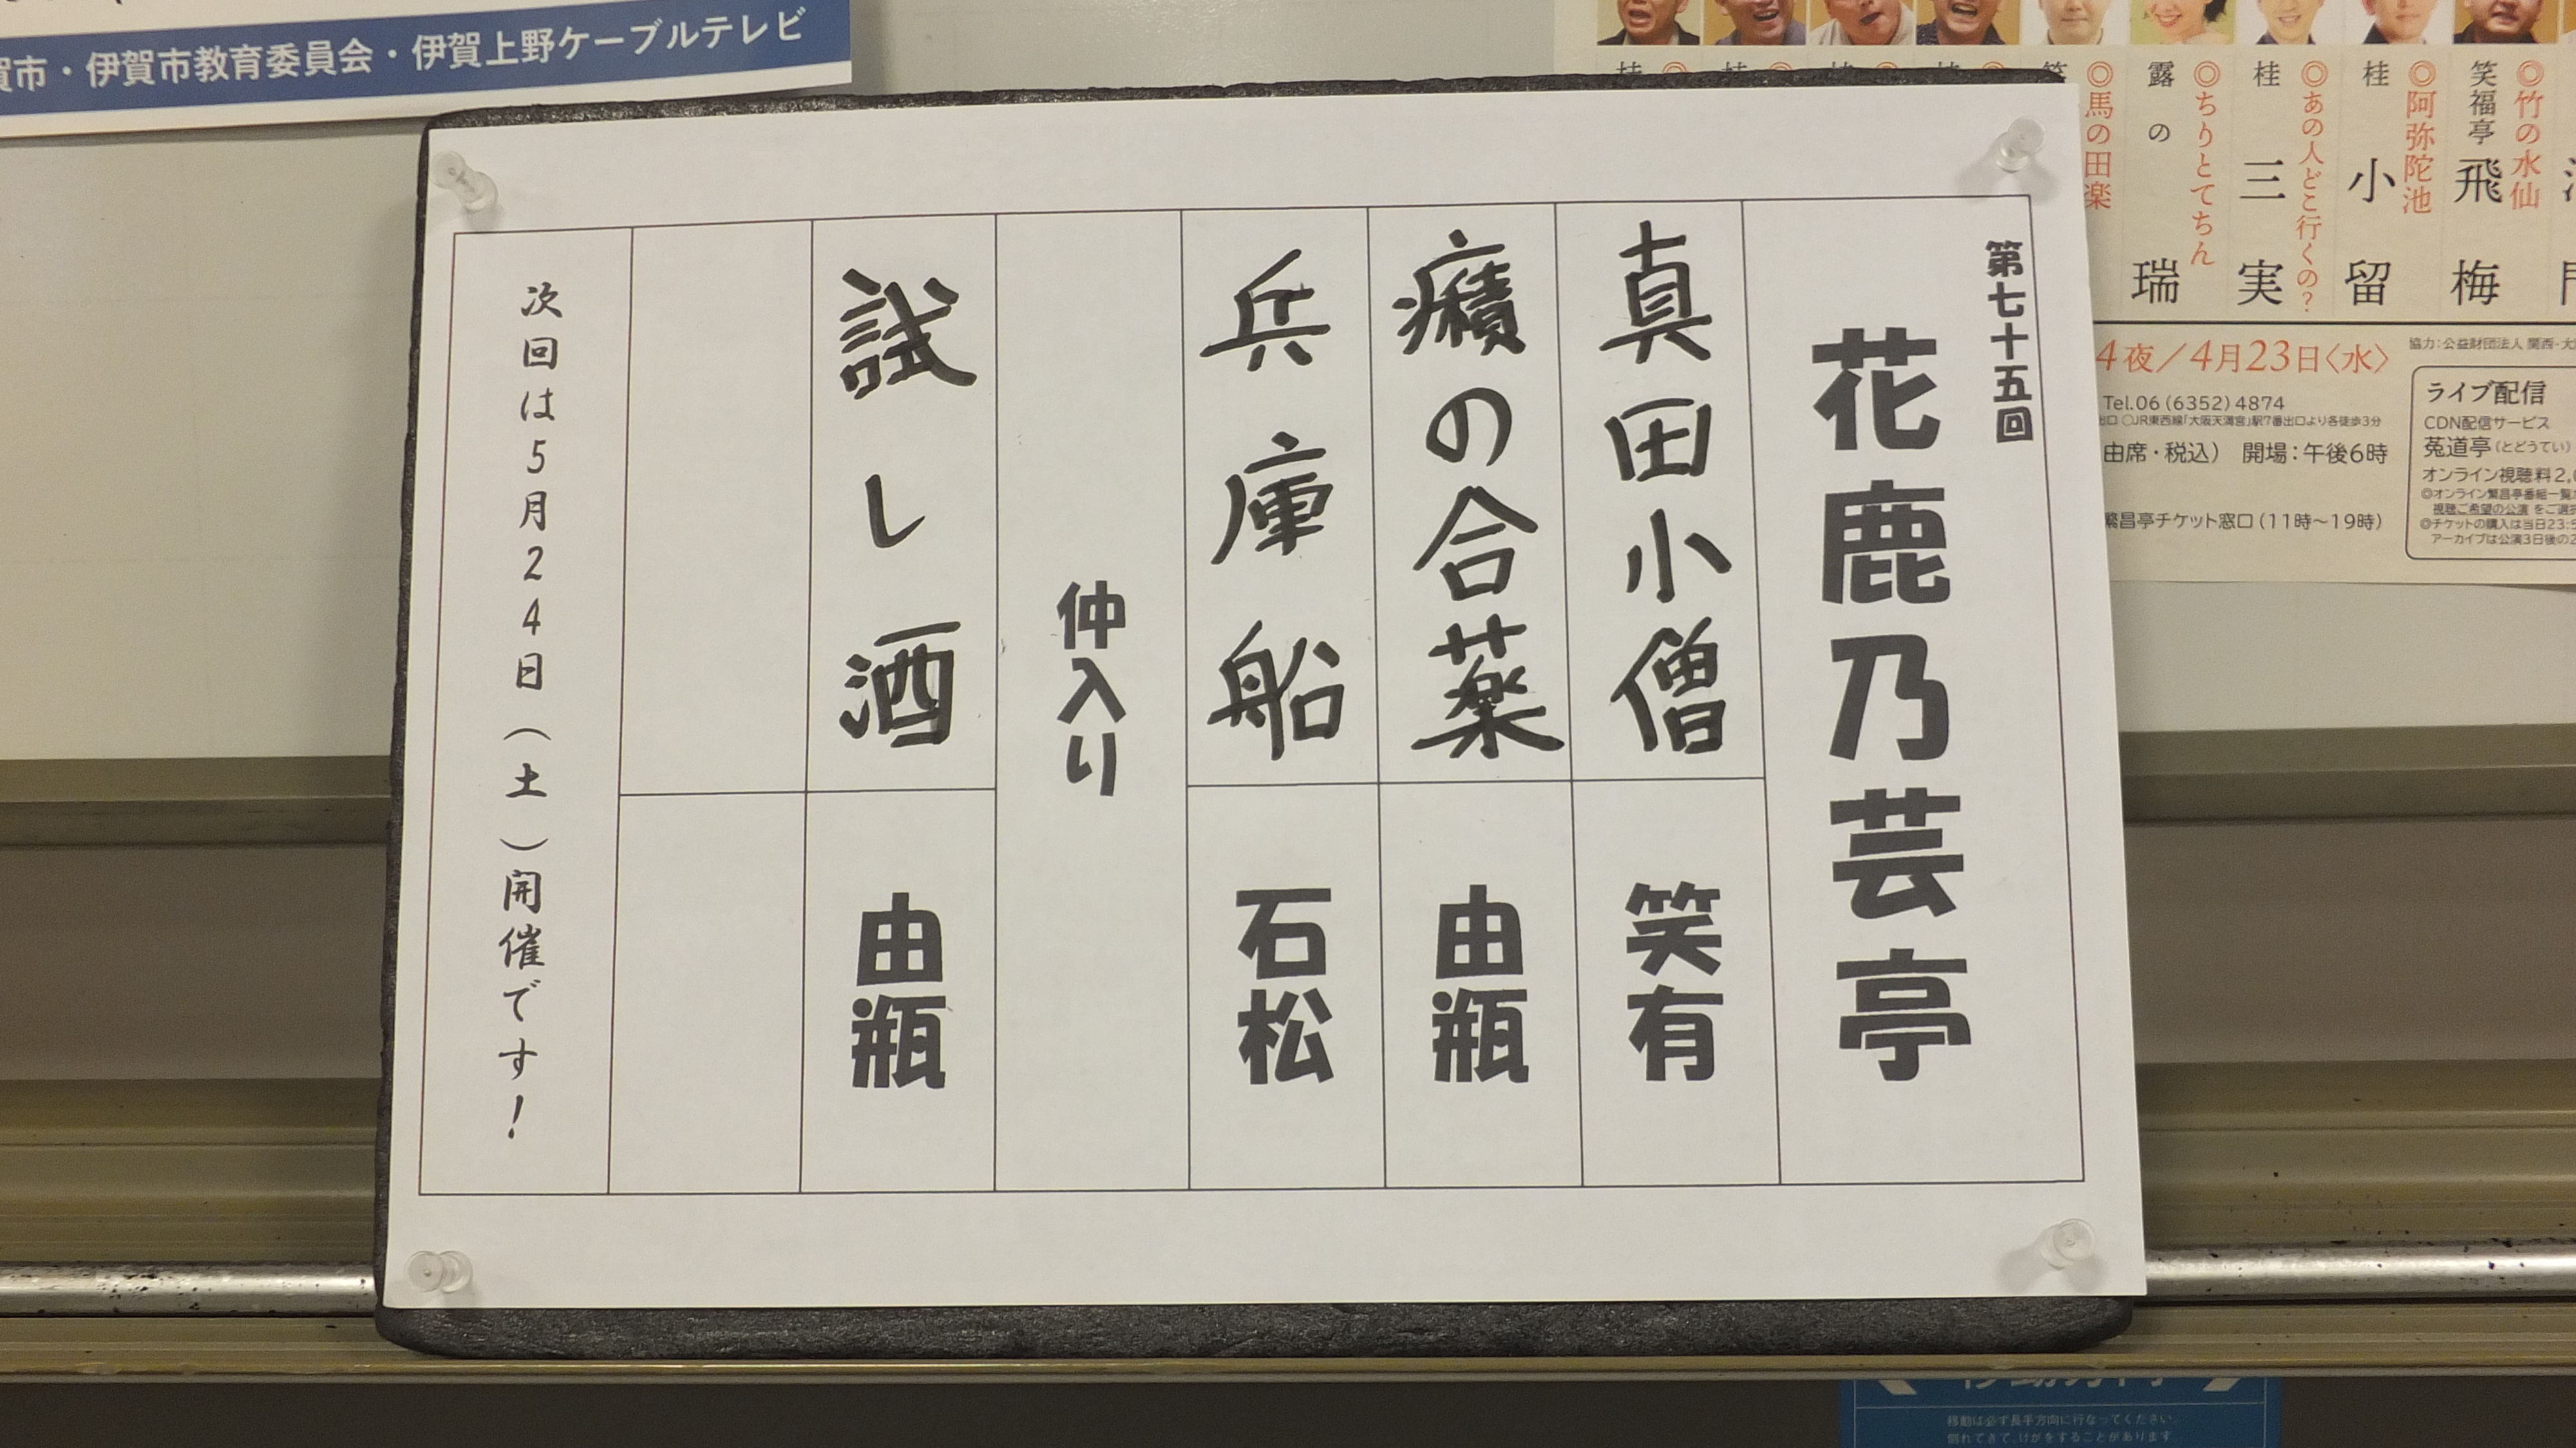 第七十五回
花鹿乃芸亭
真田小僧
笑有
癪の合薬
由瓶
兵庫船
石松
仲入り
試し酒
由瓶
次回は5月24日(土)開催です!
賀市・伊賀市教育委員会・伊賀上野ケーブルテレビ
◎竹の水仙
笑福亭飛梅
◎阿弥陀池
桂小留
◎あの人どこ行くの?
桂三実
◎ちりとてちん
露の瑞
◎馬の田楽
4夜/4月23日〈水〉
Tel.06(6352)4874
出口 ○JR東西線「大阪天満宮」駅7番出口より各徒歩3分
由席・税込) 開場:午後6時
繁昌亭チケット窓口(11時~19時)
協力:公益財団法人 関西・大
ライブ配信
CDN配信サービス
菟道亭(とどうてい)
オンライン視聴料2,
◎オンライン繁昌亭番組一覧
視聴ご希望の公演 をご選
◎チケットの購入は当日23:5
アーカイブは公演3日後の2
移動は必ず長手方向に行なってください。
倒れてきて、けがをすることがあります。